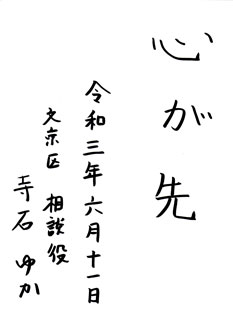 心が先
令和三年六月十一日
文京区 相談役
寺石 ゆか